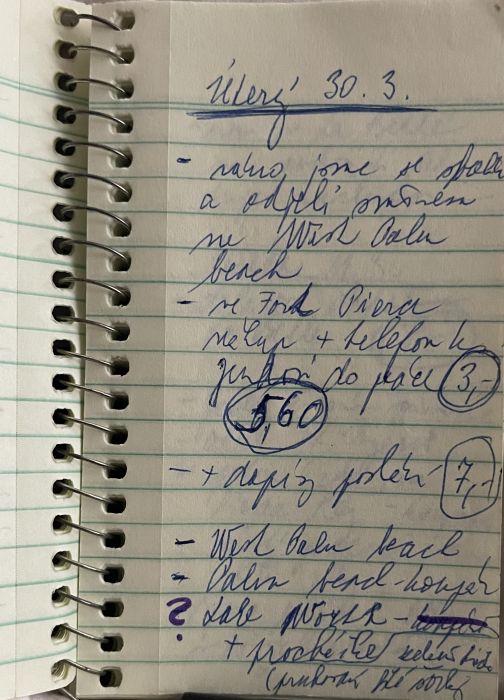 Úterý 30. 3.
- ráno jsme se sbalili
a odjeli směrem
na West Palm
beach
- ve Fort Pierce
nákup + telefon
do práce 3,-
5,60
- + dopisy poslání 7,-
- West Palm beach
- Palm beach -
? Lake Worth -
+ procházka